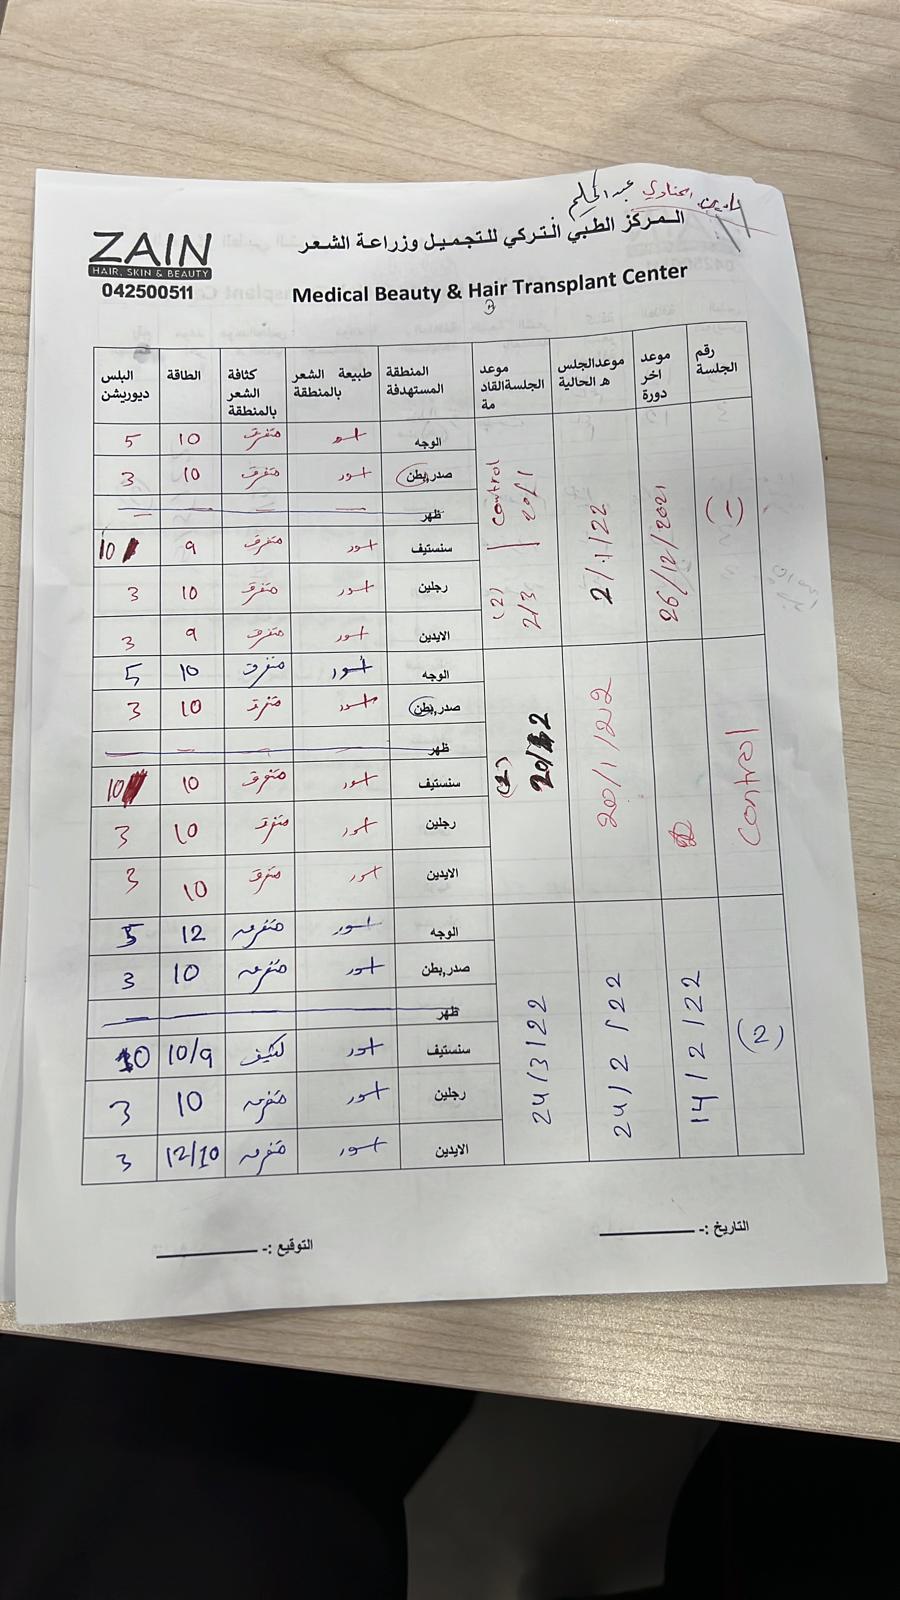 الحناوي عبد الحليم
ZAIN
HAIR, SKIN & BEAUTY
042500511
المركز الطبي التركي للتجميل وزراعة الشعر
Medical Beauty & Hair Transplant Center
رقم الجلسة موعد اخر دورة موعدالجلسة الحالية موعد الجلسةالقادمة المنطقة المستهدفة طبيعة الشعر بالمنطقة كثافة الشعر بالمنطقة الطاقة البلس ديوريشن
(1) 26/12/2021 2/1/22 control 20/1 (2) 2/3
الوجه اسود متفرق 10 5
صدر,بطن اسود متفرق 10 3
ظهر
سنستيف اسود متفرق 9 10
رجلين اسود متفرق 10 3
الايدين اسود متفرق 9 3
control 20/1/22 (2)
الوجه اسود متفرق 10 5
صدر,بطن اسود متفرق 10 3
ظهر
سنستيف اسود متفرق 10 10
رجلين اسود متفرق 10 3
الايدين اسود متفرق 10 3
(2) 14/2/22 24/2/22 24/3/22
الوجه اسود متفرق 12 5
صدر,بطن اسود متفرق 10 3
ظهر
سنستيف اسود كثيف 10/9 10
رجلين اسود متفرق 10 3
الايدين اسود متفرق 12/10 3
التاريخ :-
التوقيع :-